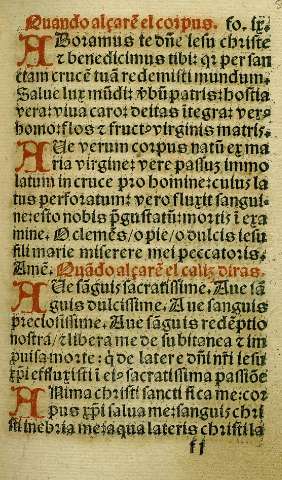 Quando alçarẽ el corpus. fo. ix.
ABoramus te dñe iesu christe
⁊ benedicimus tibi: qꝛ per san
ctam crucẽ tuã redemisti mundum.
Salue lux mũdi: ꝟbũ patris: hostia
vera: viua caro: deitas ĩtegra: verꝰ
homo: flos ⁊ fructꝰ virginis matris.
AUe verum corpus natũ ex ma
ria virgine: vere passuȝ immo
latum in cruce pro homine: cuiuȝ la
tus perforatum: vero fluxit sangui
ne: esto nobis p̃gustatũ: mortis ĩ exa
mine. O clemẽs / o pie / o dulcis iesu
fili marie miserere mei peccatoris.
Amẽ. Quãdo alçarẽ el caliz diras.
AUe sãguis sacratissime. Aue sã
guis dulcissime. Aue sanguis
preciosissime. Aue sãguis redẽptio
nostra / ⁊ libera me de subitanea ⁊ im
puisa morte: q̃ de latere dñi nr̃i iesu
xp̃i effluxisti ĩ eiꝰ sacratissima passiõe
ANima christi sancti fica me: cor
pus xp̃i salua me: sanguis chri
sti inebria me: aqua lateris christi la
ff